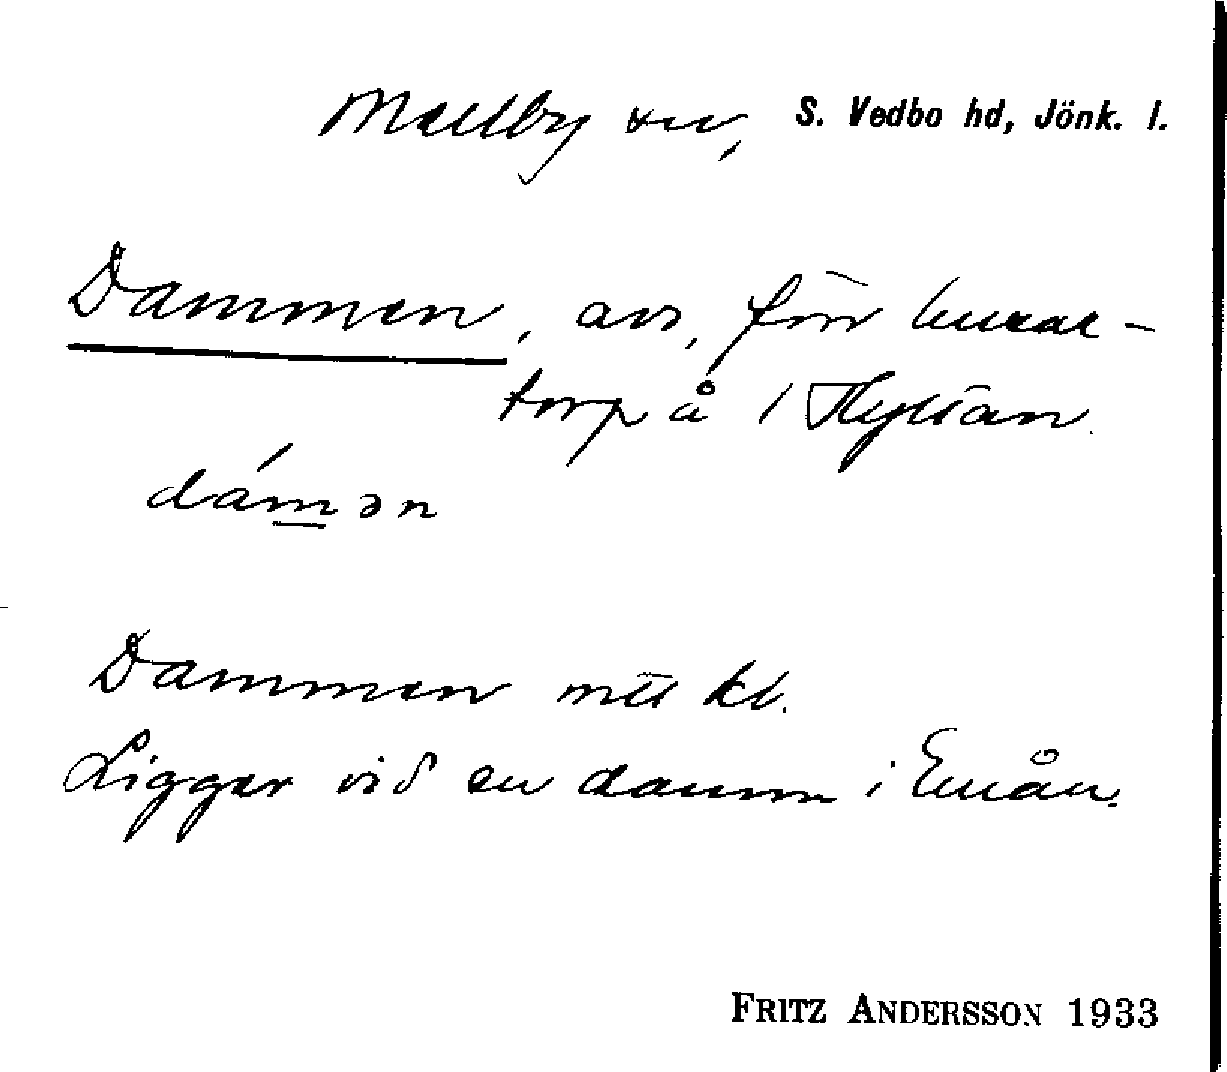 Mellby sn, S. Vedbo hd, Jönk. l.
Dammen, avs, för
torp å
dámən
Dammen mtl kl.
Ligger vid en damm i Emån.
FRITZ ANDERSSON 1933